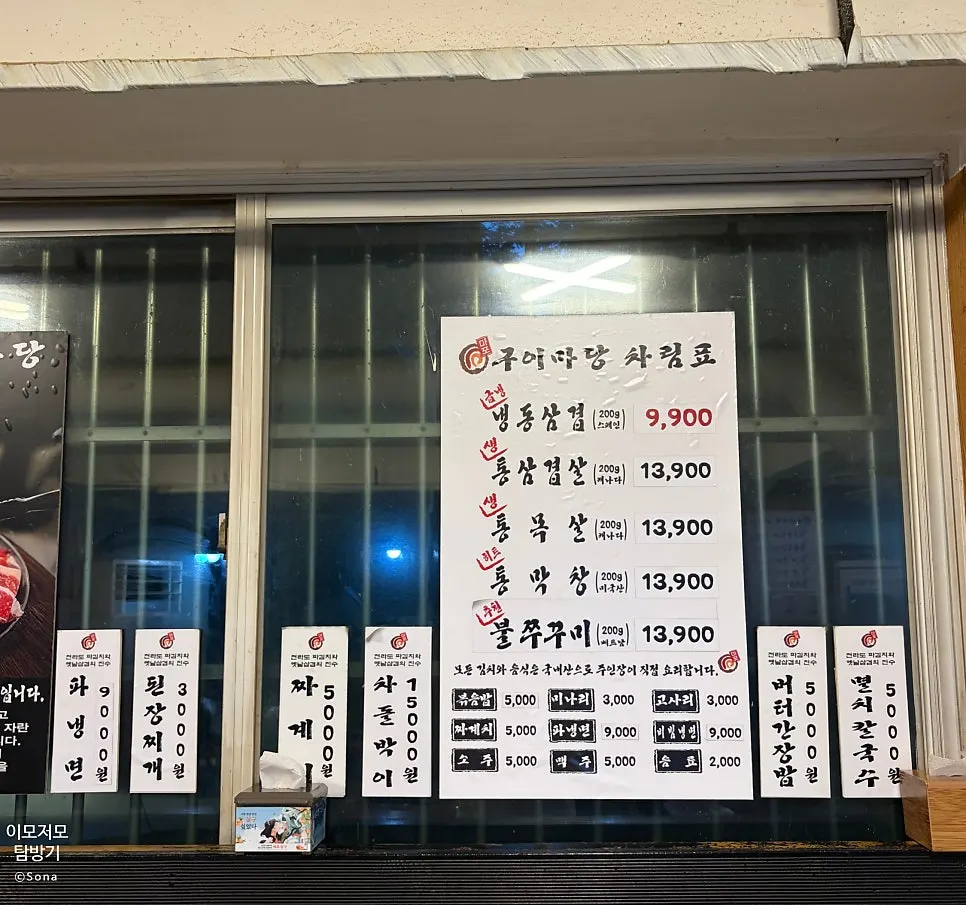 당
입니다.
고
자란
니다.
을
전라도 파김치와
옛날삼겹의 진수
파냉면
9000원
전라도 파김치와
옛날삼겹의 진수
된장찌개
3000원
전라도 파김치와
옛날삼겹의 진수
짜계치
5000원
전라도 파김치와
옛날삼겹의 진수
차돌박이
15000원
마포
구이마당 차림표
급냉
냉동삼겹 (200g 스페인) 9,900
생
통삼겹살 (200g 캐나다) 13,900
생
통목살 (200g 캐나다) 13,900
히트
통막창 (200g 미국산) 13,900
추천
불쭈꾸미 (200g 베트남) 13,900
모든 김치와 음식은 국내산으로 주인장이 직접 요리합니다.
볶음밥 5,000 미나리 3,000 고사리 3,000
짜계치 5,000 파냉면 9,000 비빔냉면 9,000
소주 5,000 맥주 5,000 음료 2,000
전라도 파김치와
옛날삼겹의 진수
버터간장밥
5000원
전라도 파김치와
옛날삼겹의 진수
멸치칼국수
5000원
이모저모
탐방기
©Sona